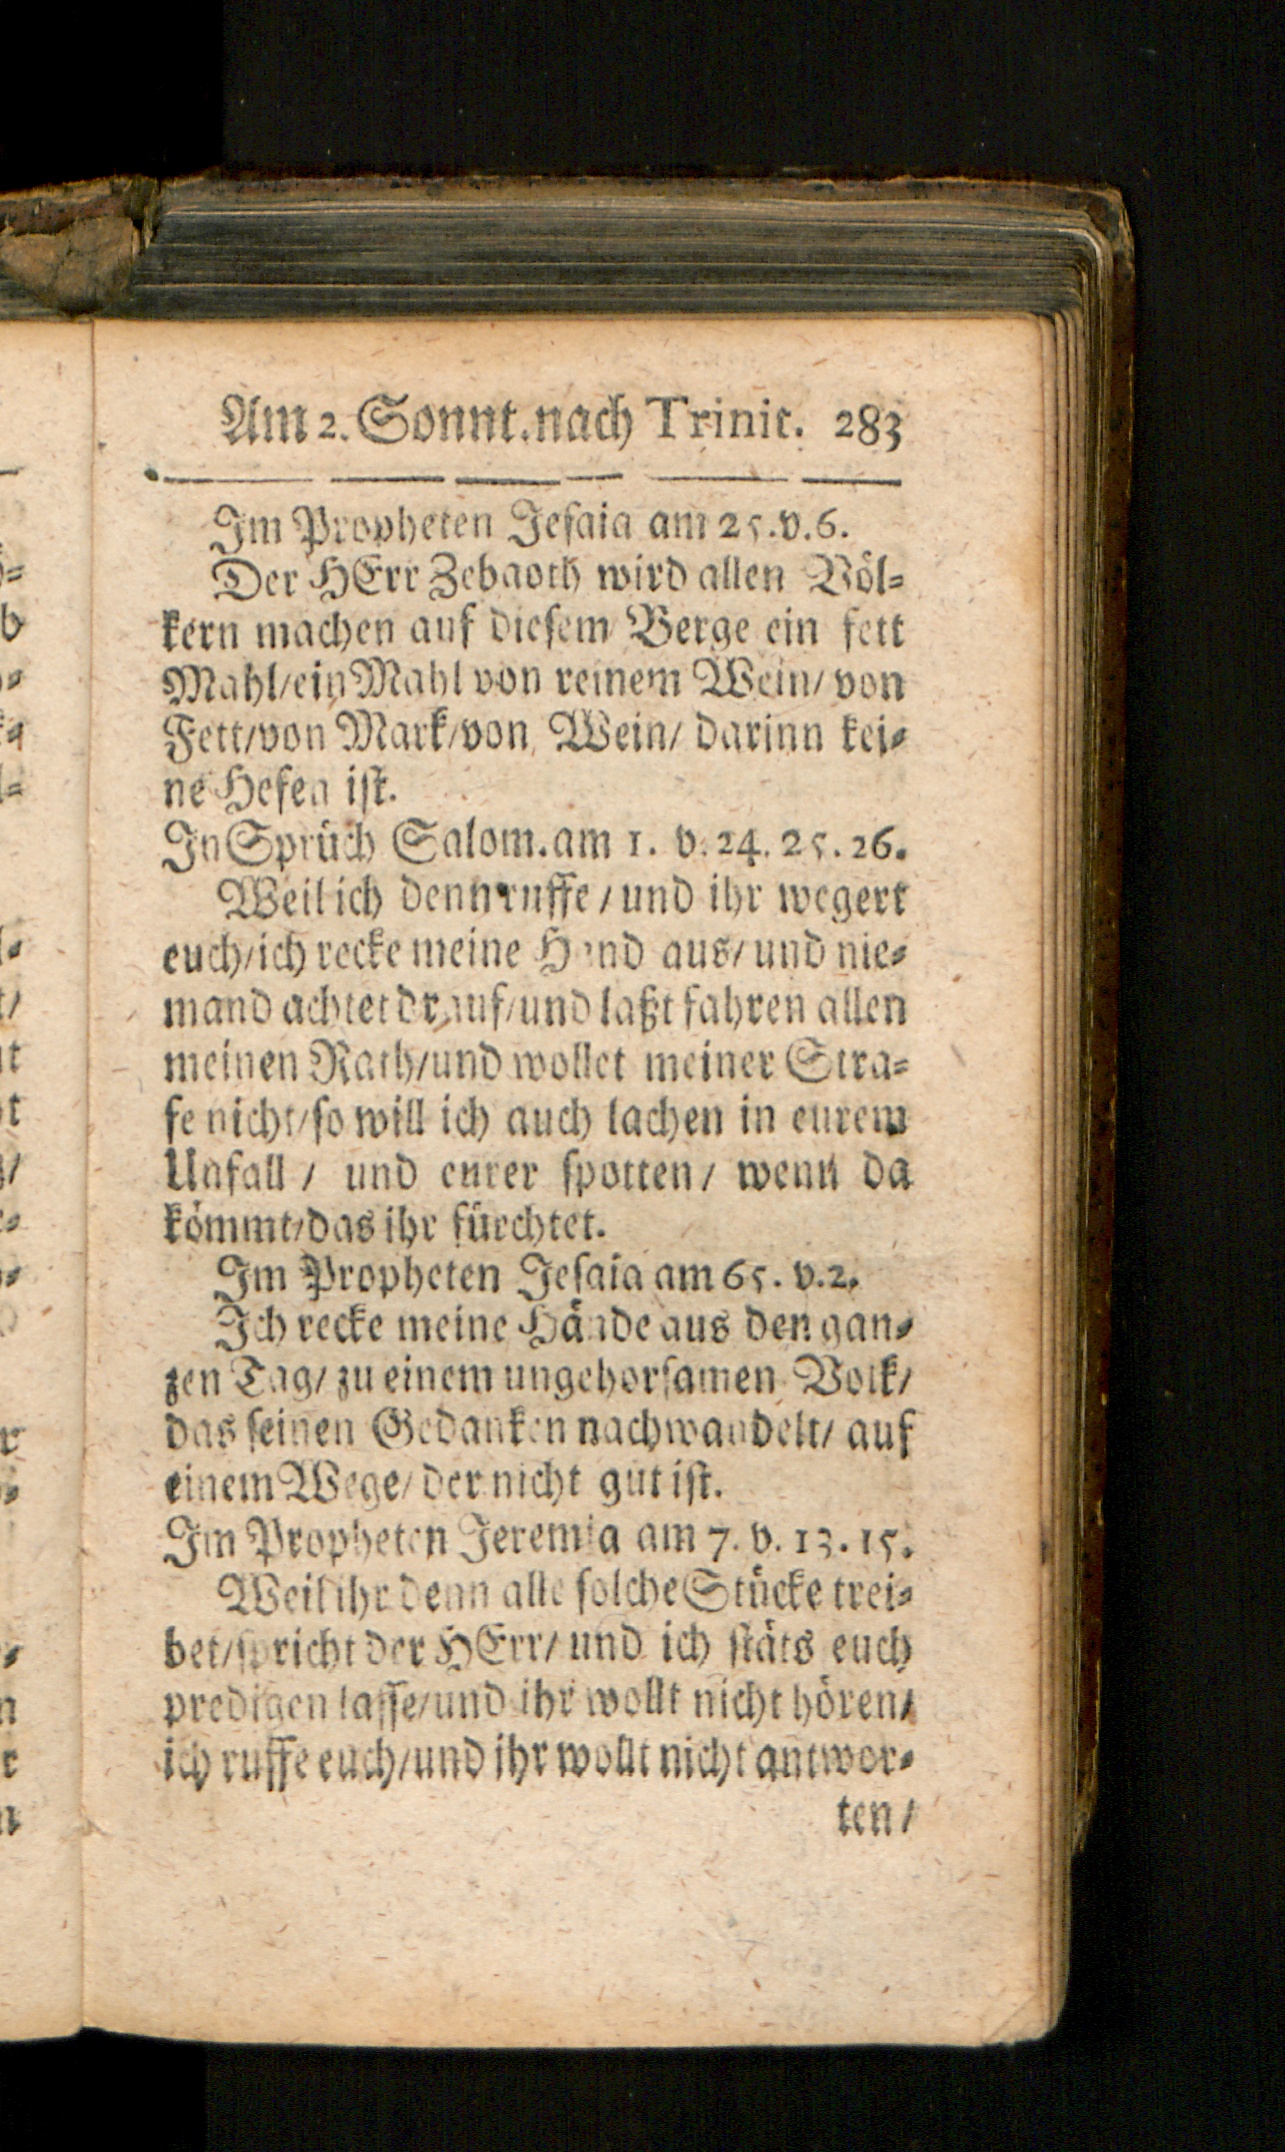 Am 2. Sonnt. nach Trinit. 283
Im Propheten Jesaia am 25. v. 6.
Der HErr Zebaoth wird allen Völ-
kern machen auf diesem Berge ein fett
Mahl/ ein Mahl von reinem Wein/ von
Fett/ von Mark/ von Wein/ darinn kei-
ne Hefen ist.
In Sprüch Salom. am 1. v. 24. 25. 26.
Weil ich denn ruffe / und ihr wegert
euch/ ich recke meine Hand aus/ und nie-
mand achtet drauf/ und laßt fahren allen
meinen Rath/ und wollet meiner Stra-
fe nicht/ so will ich auch lachen in eurem
Unfall / und eurer spotten / wenn da
kömmt/ das ihr fürchtet.
Im Propheten Jesaia am 65. v. 2.
Ich recke meine Hände aus den gan-
zen Tag/ zu einem ungehorsamen Volk/
das seinen Gedanken nachwandelt/ auf
einem Wege/ der nicht gut ist.
Im Propheten Jeremia am 7. v. 13. 15.
Weil ihr denn alle solche Stücke trei-
bet/ spricht der HErr/ und ich stäts euch
predigen lasse/ und ihr wollt nicht hören/
ich ruffe euch/ und ihr wollt nicht antwor-
ten /